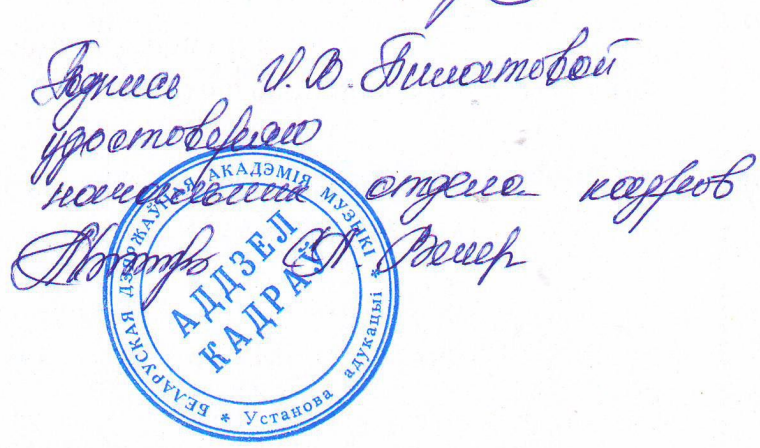 Подпись И.В. Пилатовой
удостоверяю
начальник отдела кадров
БЕЛАРУСКАЯ ДЗЯРЖАЎНАЯ АКАДЭМІЯ МУЗЫКІ * Установа адукацыі *
АДДЗЕЛ
КАДРАЎ